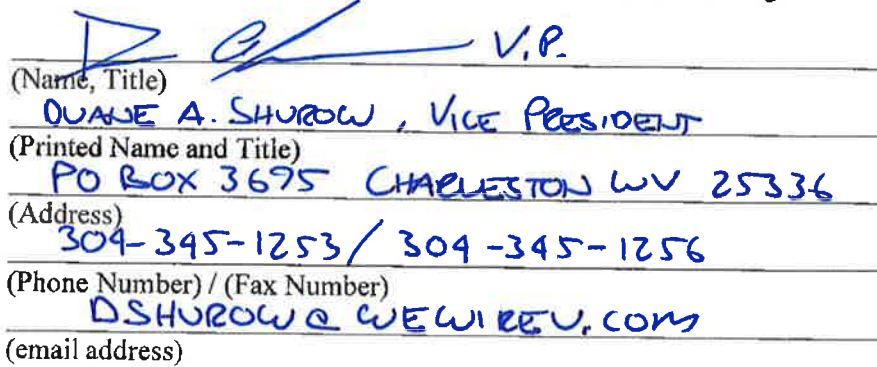 V.P.
(Name, Title)
DUANE A. SHUROW, VICE PRESIDENT
(Printed Name and Title)
PO BOX 3695 CHARLESTON WV 25336
(Address)
304-345-1253/ 304-345-1256
(Phone Number) / (Fax Number)
(email address)